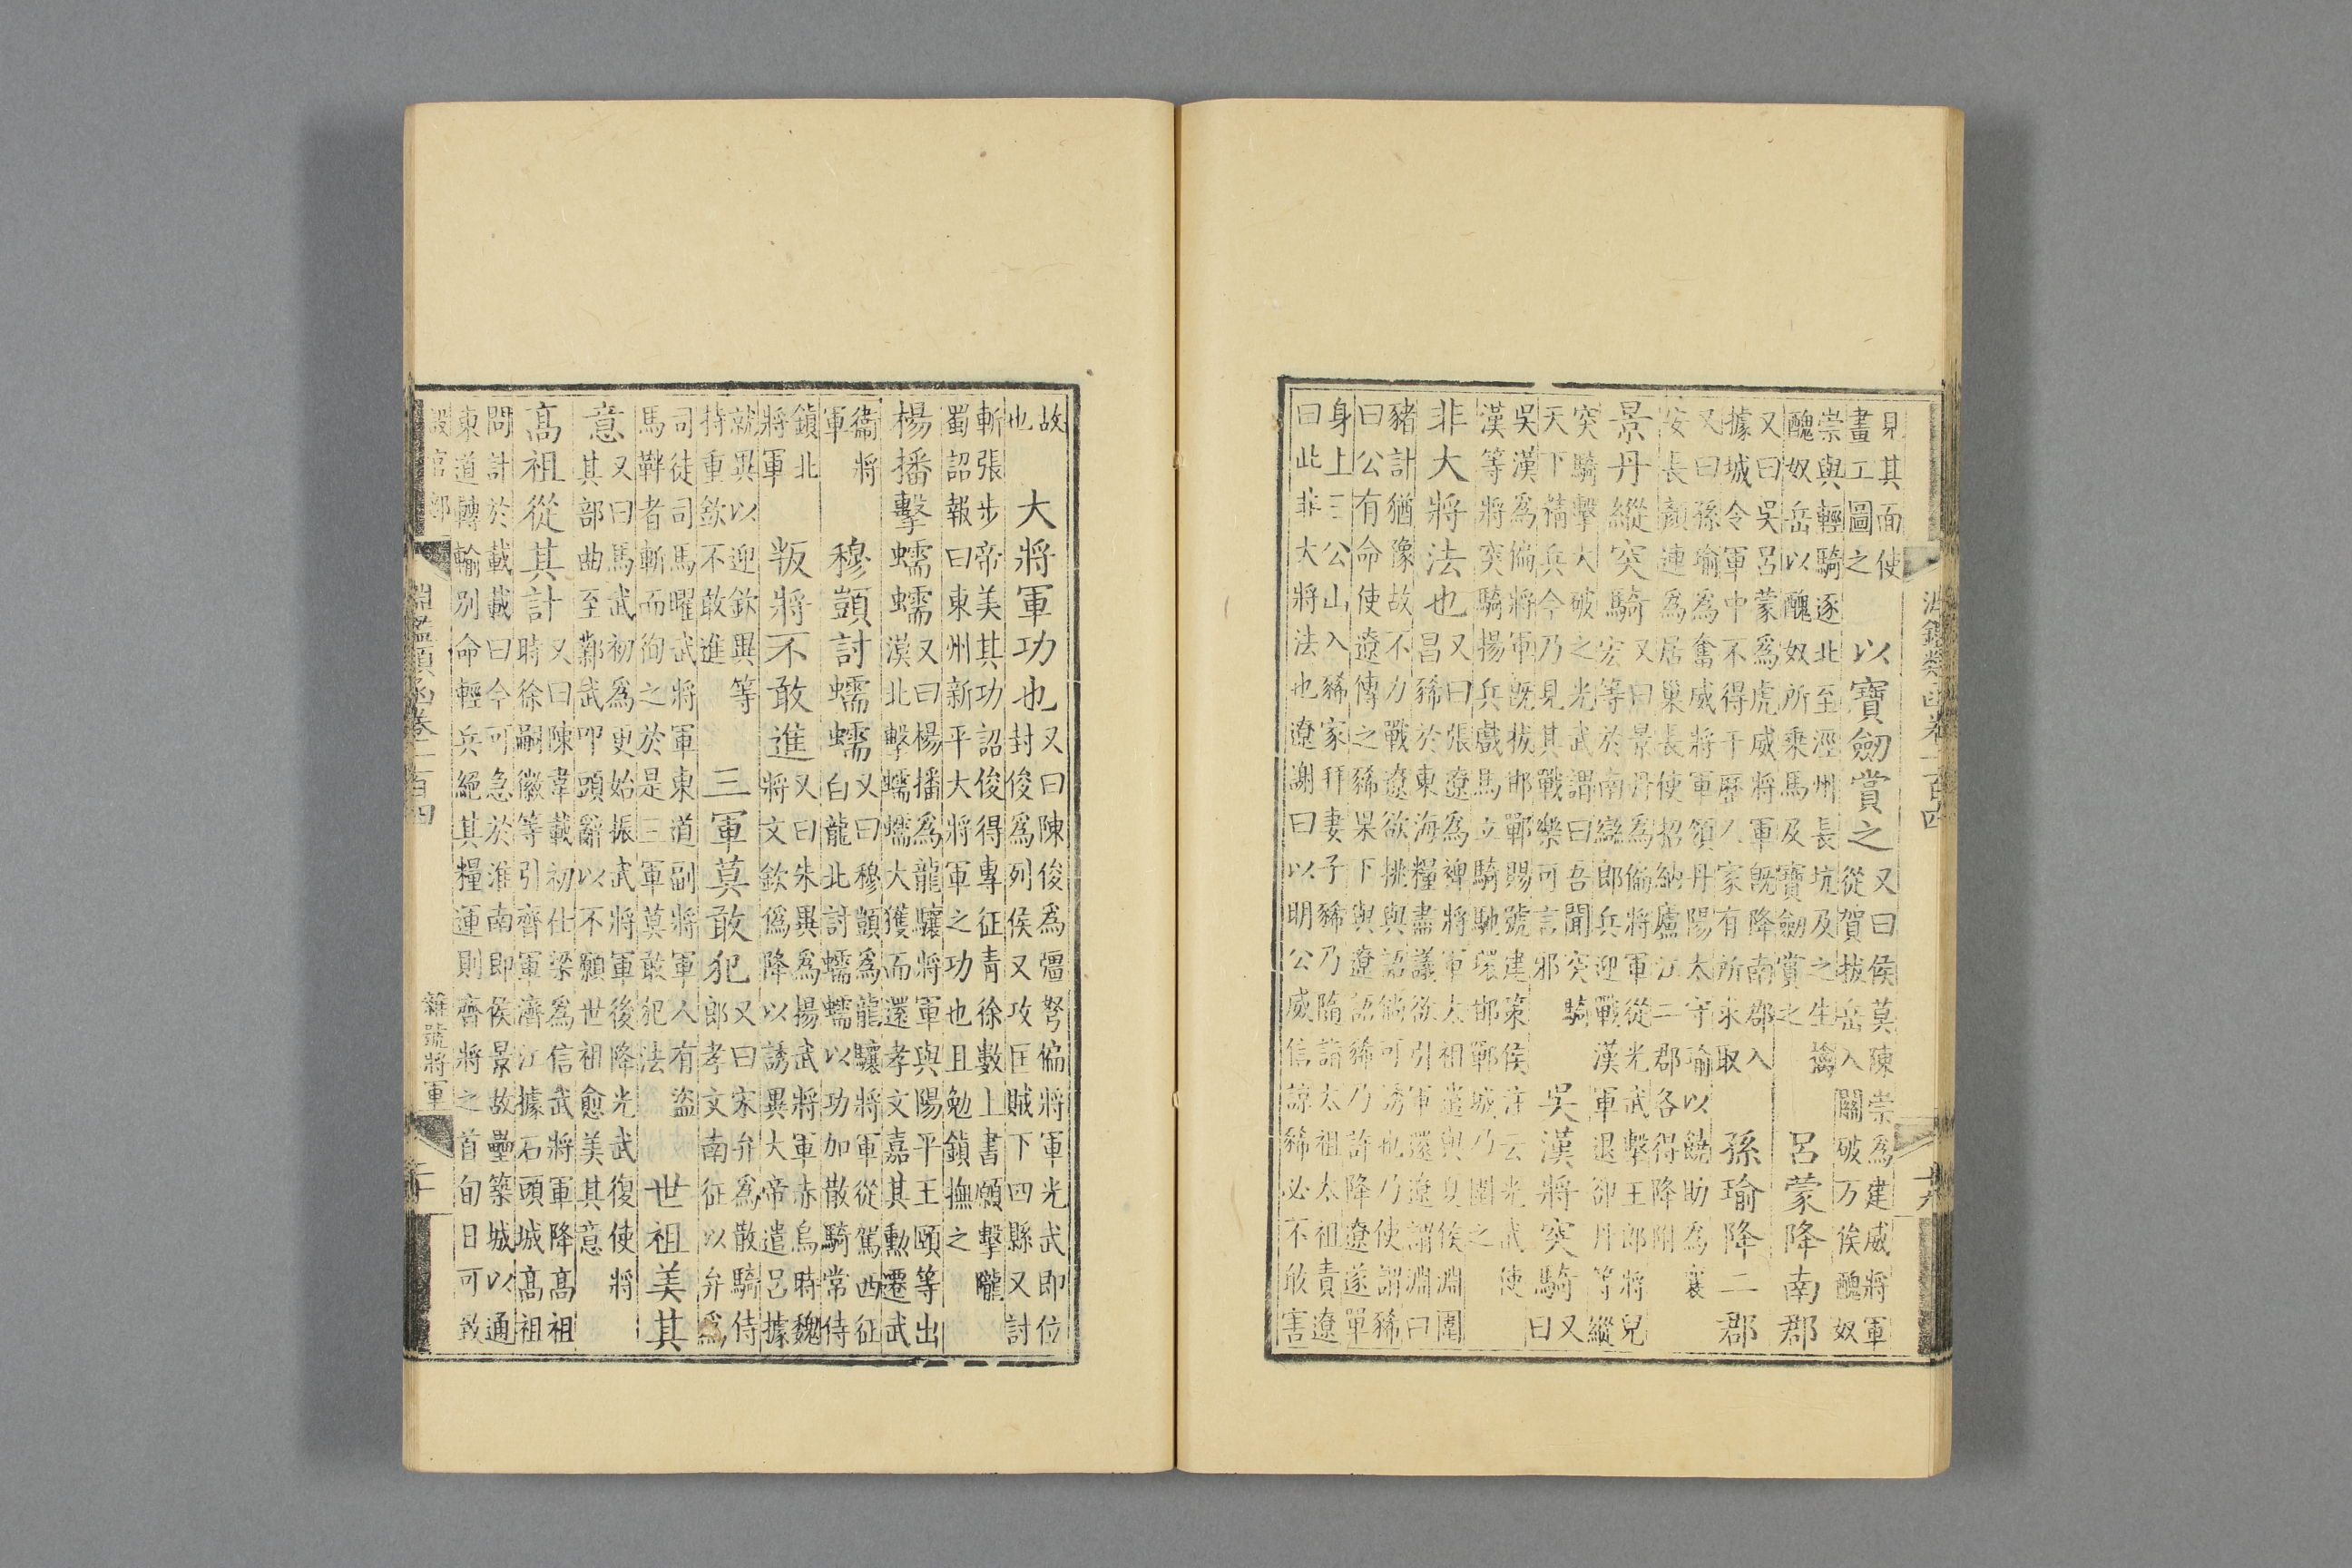 見其面使
畫工圖之
以寶劒賞之
又曰侯莫陳崇爲建威將軍
從賀拔岳入關破万俟醜奴
崇與輕騎逐北至涇州長坑及之生擒
醜奴岳以醜奴所乘馬及寶劒賞之
呂蒙降南郡
又曰吳呂蒙爲虎威將軍既降南郡入
據城令軍中不得干歷人家有所求取
孫瑜降二郡
又曰孫瑜爲奮威將軍領丹陽太守瑜以饒助爲襄
安長顏連爲居巢長使招納廬江二郡各得降附
景丹縱突騎
又曰景丹爲偏將軍從光武擊王郎將兒
宏等於南䜌郎兵迎戰漢軍退卻丹等縱
突騎擊大破之光武謂曰吾聞突騎
天下精兵今乃見其戰樂可言邪
吳漢將突騎
又
曰
吳漢爲偏將軍既拔邯鄲賜號建策侯注云光武使
漢等將突騎揚兵戲馬立騎馳環邯鄲城乃圍之
非大將法也
又曰張遼爲裨將軍太祖遣與夏侯淵圍
昌豨於東海糧盡議欲引軍還遼謂淵曰
豬計猶豫故不力戰遼欲挑與語儻可誘也乃使謂豨
曰公有命使遼傳之豨果下與遼語豨乃許降遼遂單
身上三公山入豨家拜妻子豨乃隨詣太祖太祖責遼
曰此非大將法也遼謝曰以明公威信諒豨必不敢害
故
也
大將軍功也
又曰陳俊爲彊弩偏將軍光武即位
封俊爲列侯又攻匡賊下四縣又討
斬張步帝美其功詔俊得專征青徐數上書願擊隴
蜀詔報曰東州新平大將軍之功也且勉鎮撫之
楊播擊蠕蠕
又曰楊播爲龍驤將軍與陽平王頤等出
漢北擊蠕蠕大獲而還孝文嘉其勳遷武
衞將
軍
穆顗討蠕蠕
又曰穆顗爲龍驤將軍從駕西征
白龍北討蠕蠕以功加散騎常侍
鎮北
將軍
叛將不敢進
又曰朱異爲揚武將軍赤烏時魏
將文欽僞降以誘異大帝遣呂據
就異以迎欽異等
持重欽不敢進
三軍莫敢犯
又曰宋弁爲散騎侍
郎孝文南征以弁爲
司徒司馬曜武將軍東道副將軍人有盜
馬鞾者斬而徇之於是三軍莫敢犯法
世祖美其
意
又曰馬武初爲更始振武將軍後降光武復使將
其部曲至鄴武叩頭辭以不願世祖愈美其意
高祖從其計
又曰陳韋載初仕梁爲信武將軍降高祖
時徐嗣徽等引齊軍濟江據石頭城高祖
問計於載載曰今可急於淮南即侯景故壘築城以通
東道轉輸別命輕兵絕其糧運則齊將之首旬日可致
設官部
淵鑑類函卷一百四
雜號將軍